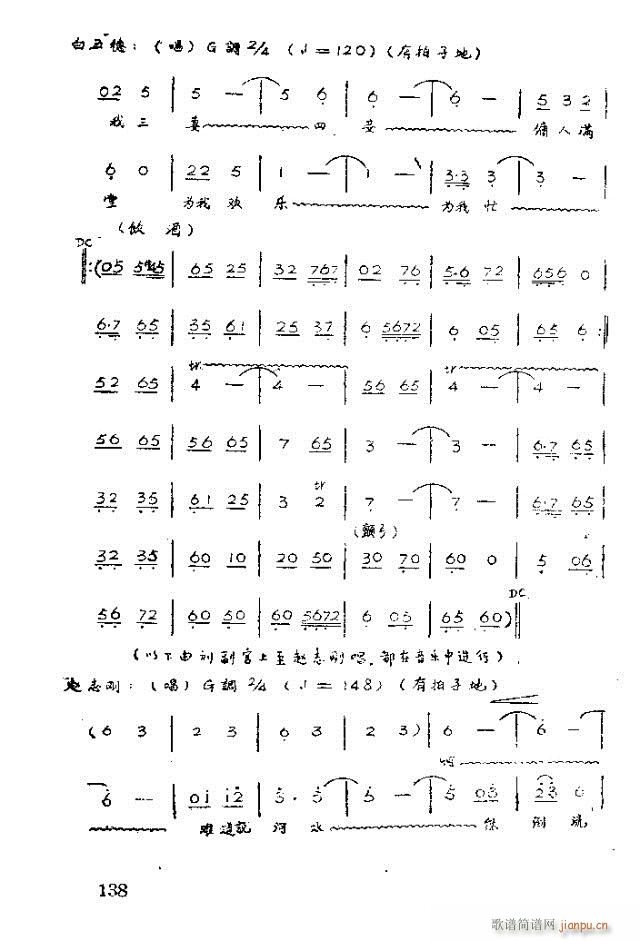 白五德：（唱）G調 2/4（♩=120）（有拍子地）
02 5 | 5 — | 5 6 | 6 — | 6 — | 5 3 2
我三 妻 四 妾 傭人滿
6 0 | 22 5 | 1 — | 1 — | 3·3 3 | 3 —
堂 为我 欢 乐 为我 忙
（做 酒）
DC
65 25 | 32 767 | 02 76 | 5·6 72 | 656 0
6·7 65 | 35 61 | 25 37 | 6 5672 | 6 05 | 65 6 :‖
52 65 | 4 — | 4 — | 56 65 | 4 — | 4 —
56 65 | 56 65 | 7 65 | 3 — | 3 — | 6·7 65
32 35 | 61 25 | 3 2 | 7 — | 7 — | 6·7 65
（顫弓）
32 35 | 60 10 | 20 50 | 30 70 | 60 0 | 5 06
DC
56 72 | 60 50 | 60 5672 | 6 05 | 65 60）‖
（以下由刘副官上至赵志刚唱，都在音乐中进行）.
赵志刚：（唱）G調 2/4（♩=148）（有拍子地）
（6 3 | 2 3 | 6 3 | 2 3）| 6 — | 6 —
啊
6 — | 01 12 | 3· 3 | 3 — | 5 03 | 23 6
难道説 河 水 倒流
138
歌谱简谱网 jianpu.cn